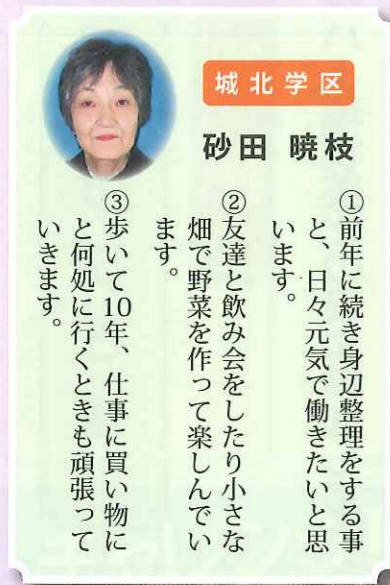 城北学区
砂田 暁枝
①前年に続き身辺整理をする事
と、日々元気で働きたいと思
います。
②友達と飲み会をしたり小さな
畑で野菜を作って楽しんでい
ます。
③歩いて10年、仕事に買い物に
と何処に行くときも頑張って
いきます。